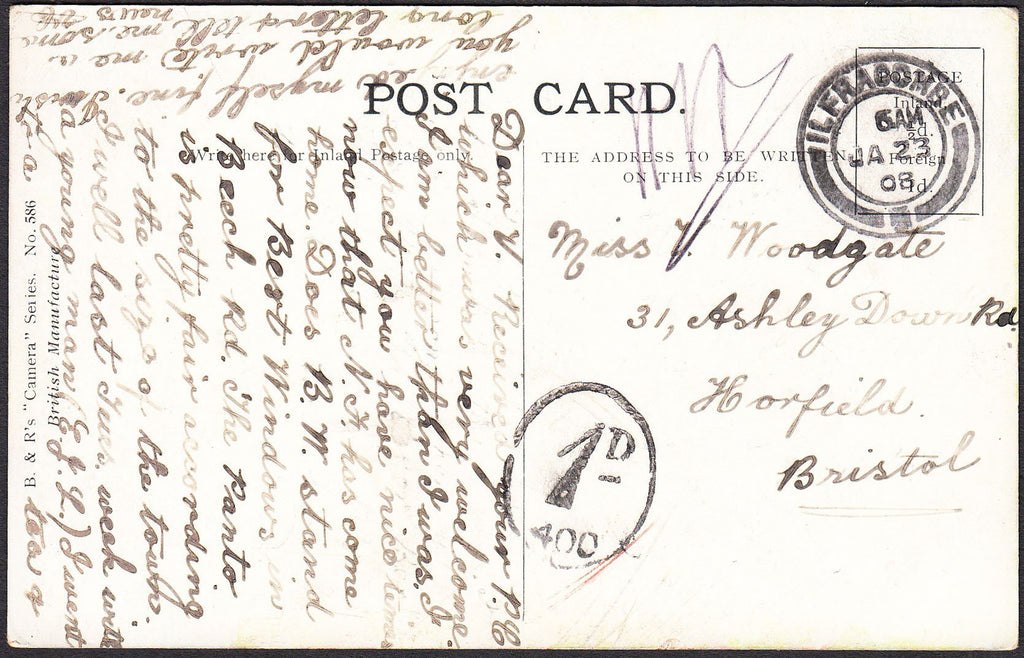 POST CARD.
Write here for Inland Postage only.
THE ADDRESS TO BE WRITTEN
ON THIS SIDE.
POSTAGE
Inland
½d.
Foreign
1d.
ILFRACOMBE
6 AM
JA 23
08
Miss V. Woodgate
31, Ashley Down Rd
Horfield.
Bristol
1D
400
B. & R's "Camera" Series. No. 586
British Manufacture
Dear V. Received your P.C
which was very welcome
I am better than I was. I
expect you have nice times
now that N. F. has come
home. Does B. W. stand
for Best Windows in
Beech Rd. The Panto
is pretty fair according
to the size of the town.
I well last Tues. week with
a young man (E. J. L.) I went
to a
tea &
enjoyed myself fine. I wish
you would write me a
long letter & tell me some
news